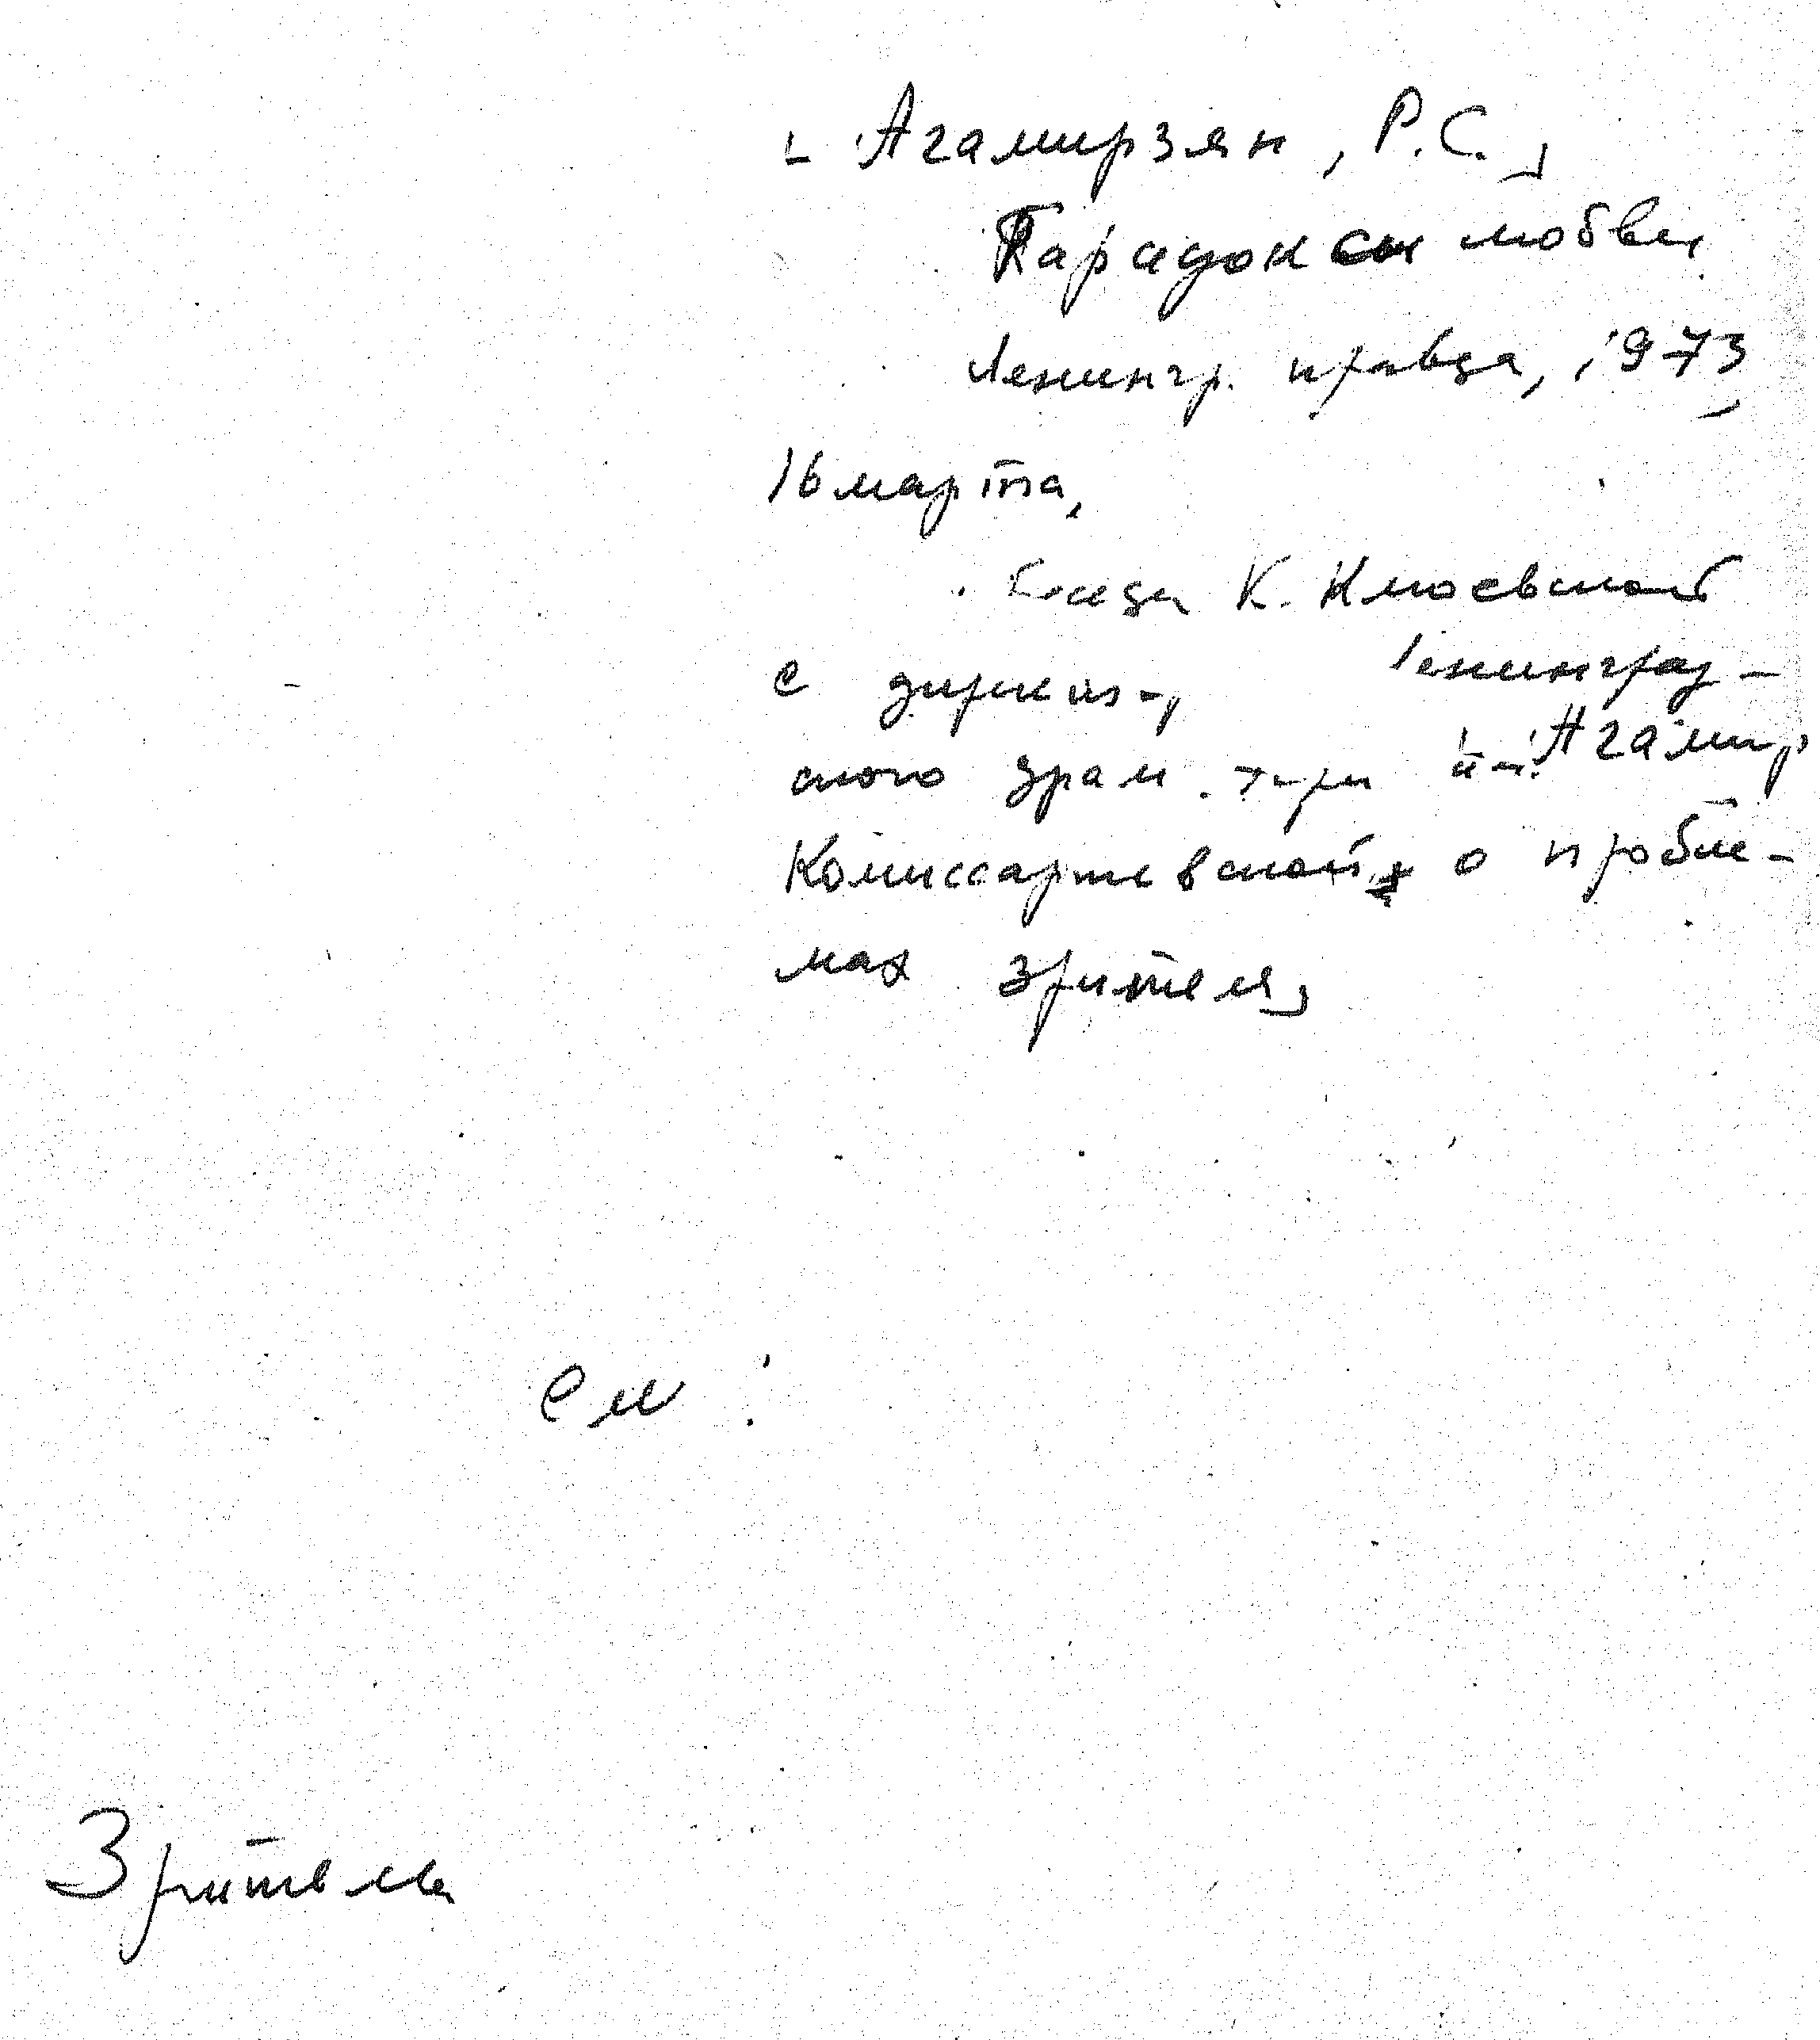 Агамирзян, Р.С.
Парадоксы любви
Ленингр. правда, 1973
16 марта,
Беседа К. Клюевской
с Ленинград-
ского драм. т-ра им. Агамир
Комиссаржевской о пробле-
мах зрителя
См :
Зритель